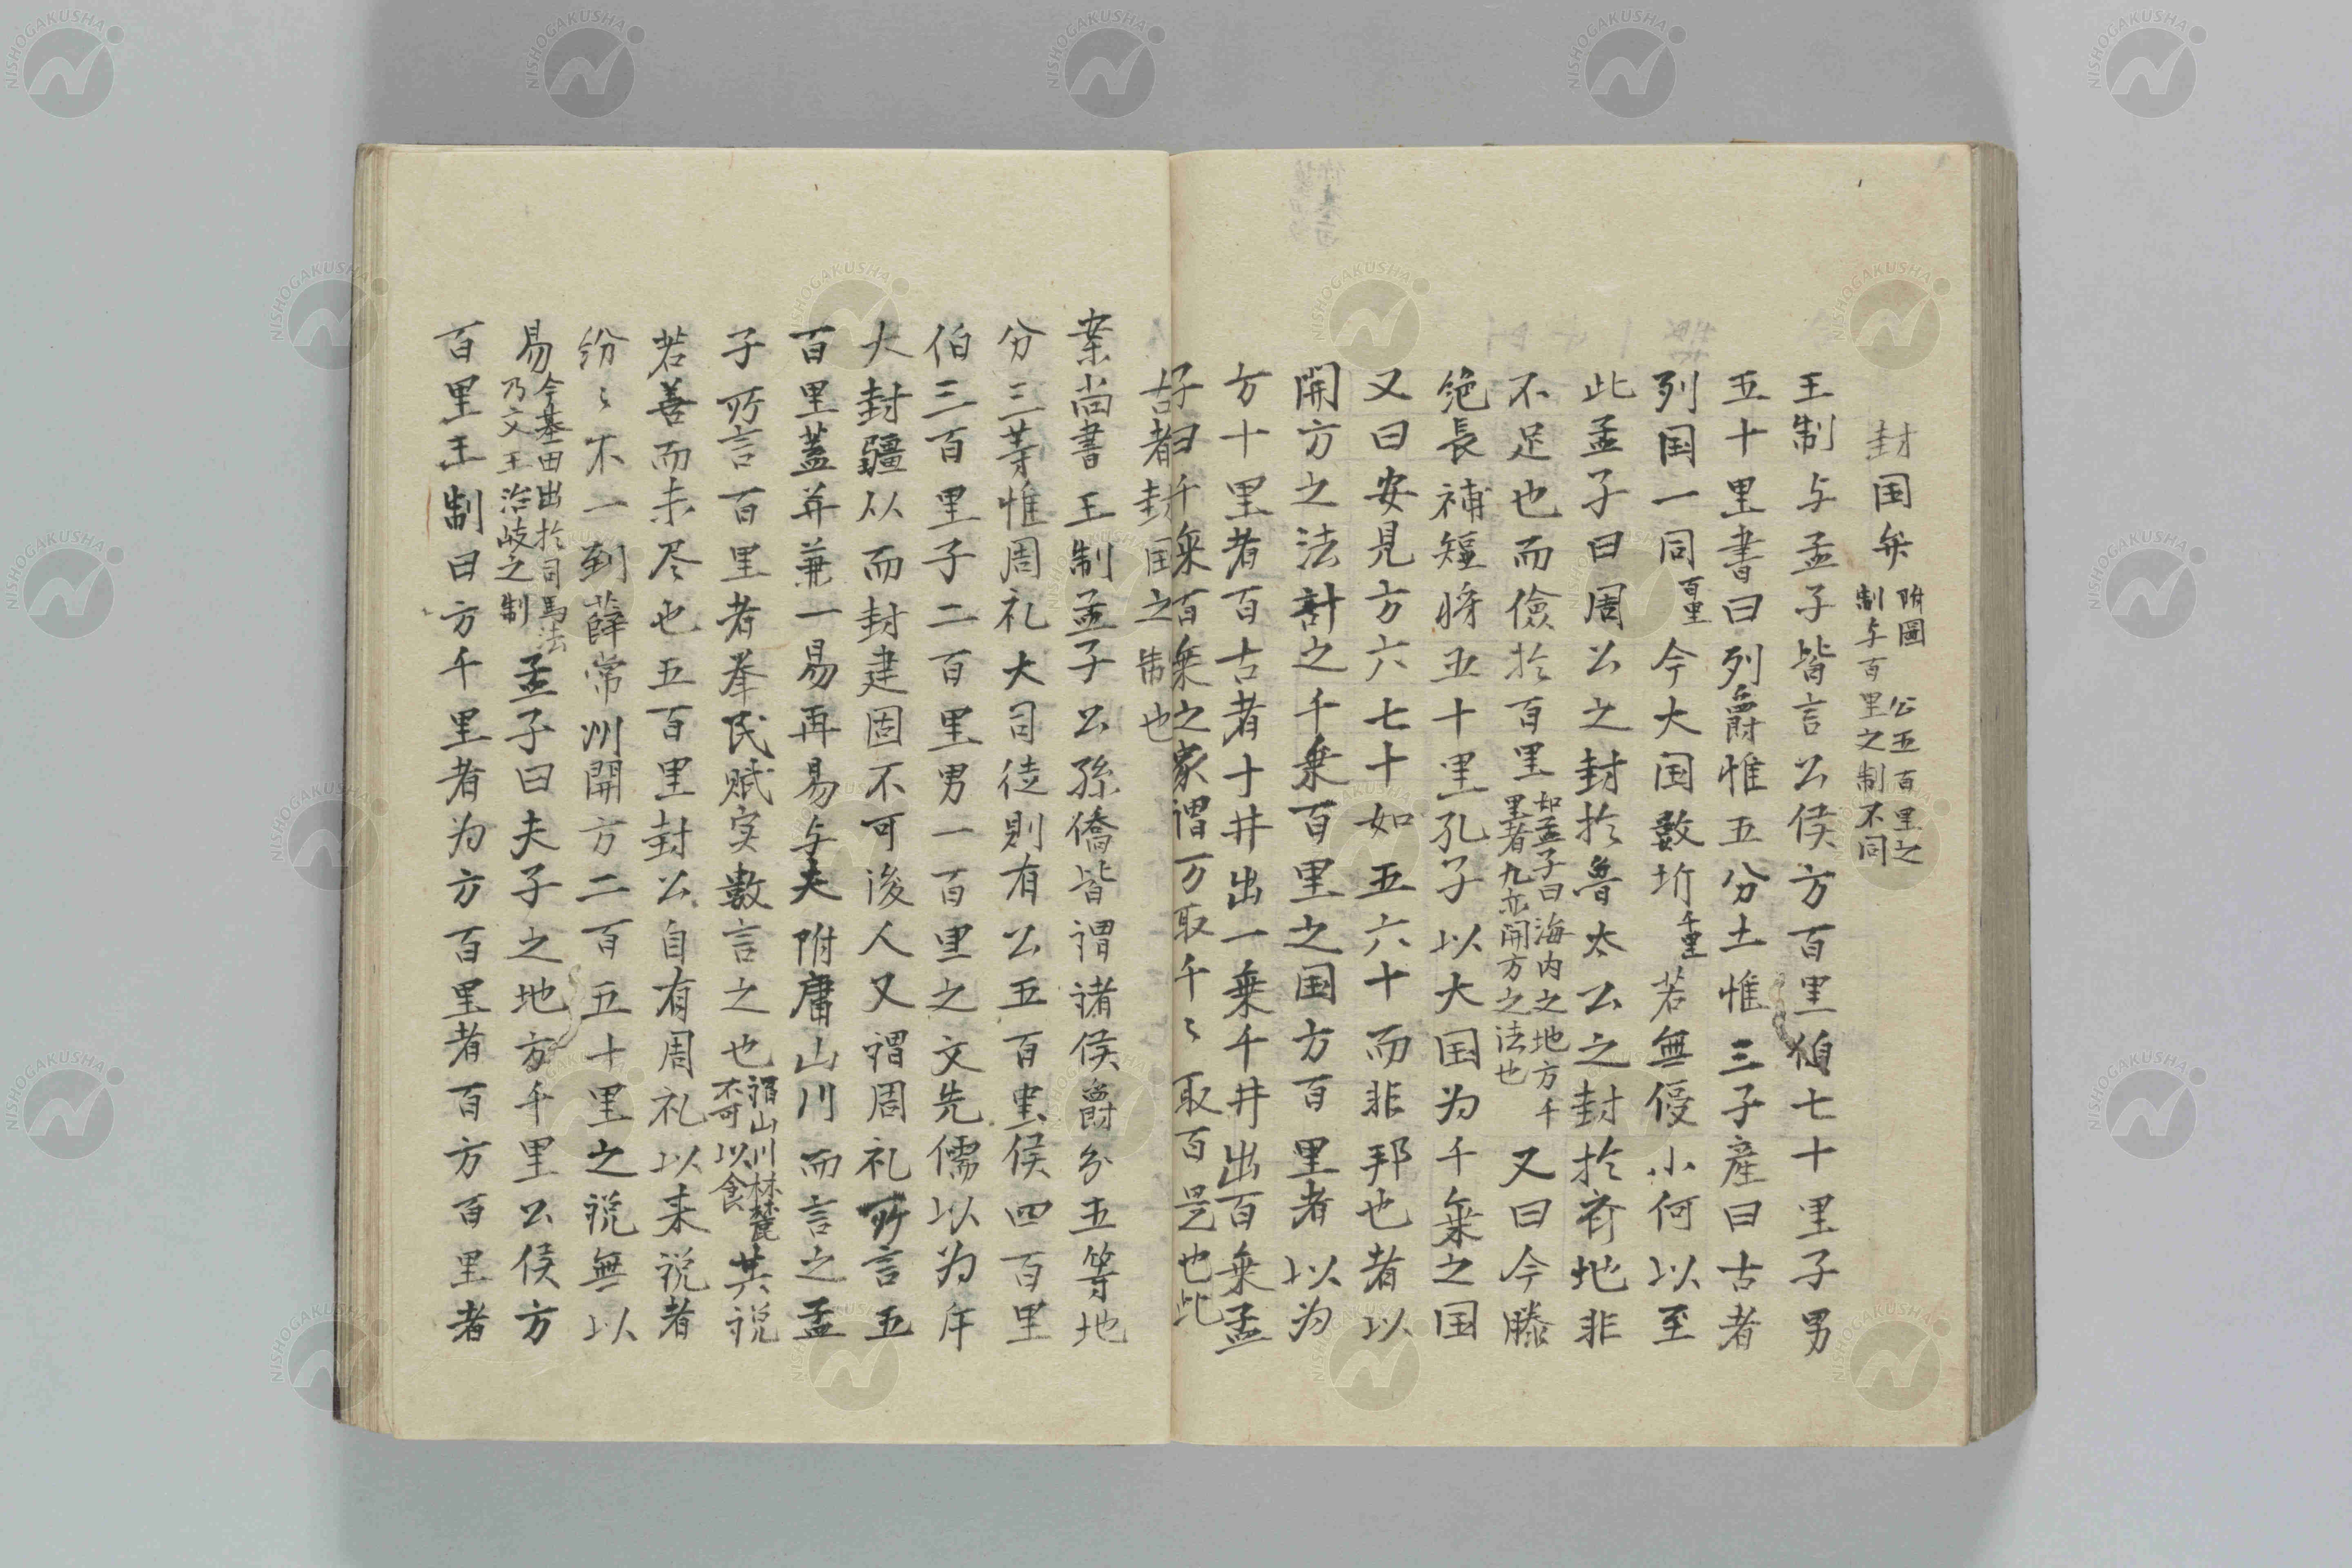 封国弁 附圖 公五百里之制与百里之制不同
王制与孟子皆言公侯方百里伯七十里子男
五十里書曰列爵惟五分土惟三子産曰古者
列国一同百里今大国数圻千里若無侵小何以至
此孟子曰周公之封於魯太公之封於斉地非
不足也而儉於百里如孟子曰海内之地方千里者九亦開方之法也又曰今滕
绝長補短将五十里孔子以大国为千乗之国
又曰安見方六七十如五六十而非邦也者以
開方之法計之千乗百里之国方百里者以为
方十里者百古者十井出一乗千井出百乗孟
子曰千乗百乗之家謂万取千〻取百是也此
古者封国之制也
案尚書王制孟子公孫僑皆謂諸侯爵分五等地
分三等惟周礼大司徒則有公五百里侯四百里
伯三百里子二百里男一百里之文先儒以为年
大封疆从而封建固不可後人又謂周礼所言五
百里蓋并兼一易再易与夫附庸山川而言之孟
子所言百里者举民赋实数言之也謂山川林麓不可以食其説
若善而未尽也五百里封公自有周礼以来説者
纷〻不一到薛常州開方二百五十里之説無以
易今基田出於司馬法乃文王治岐之制孟子曰夫子之地方千里公侯方
百里王制曰方千里者为方百里者百方百里者